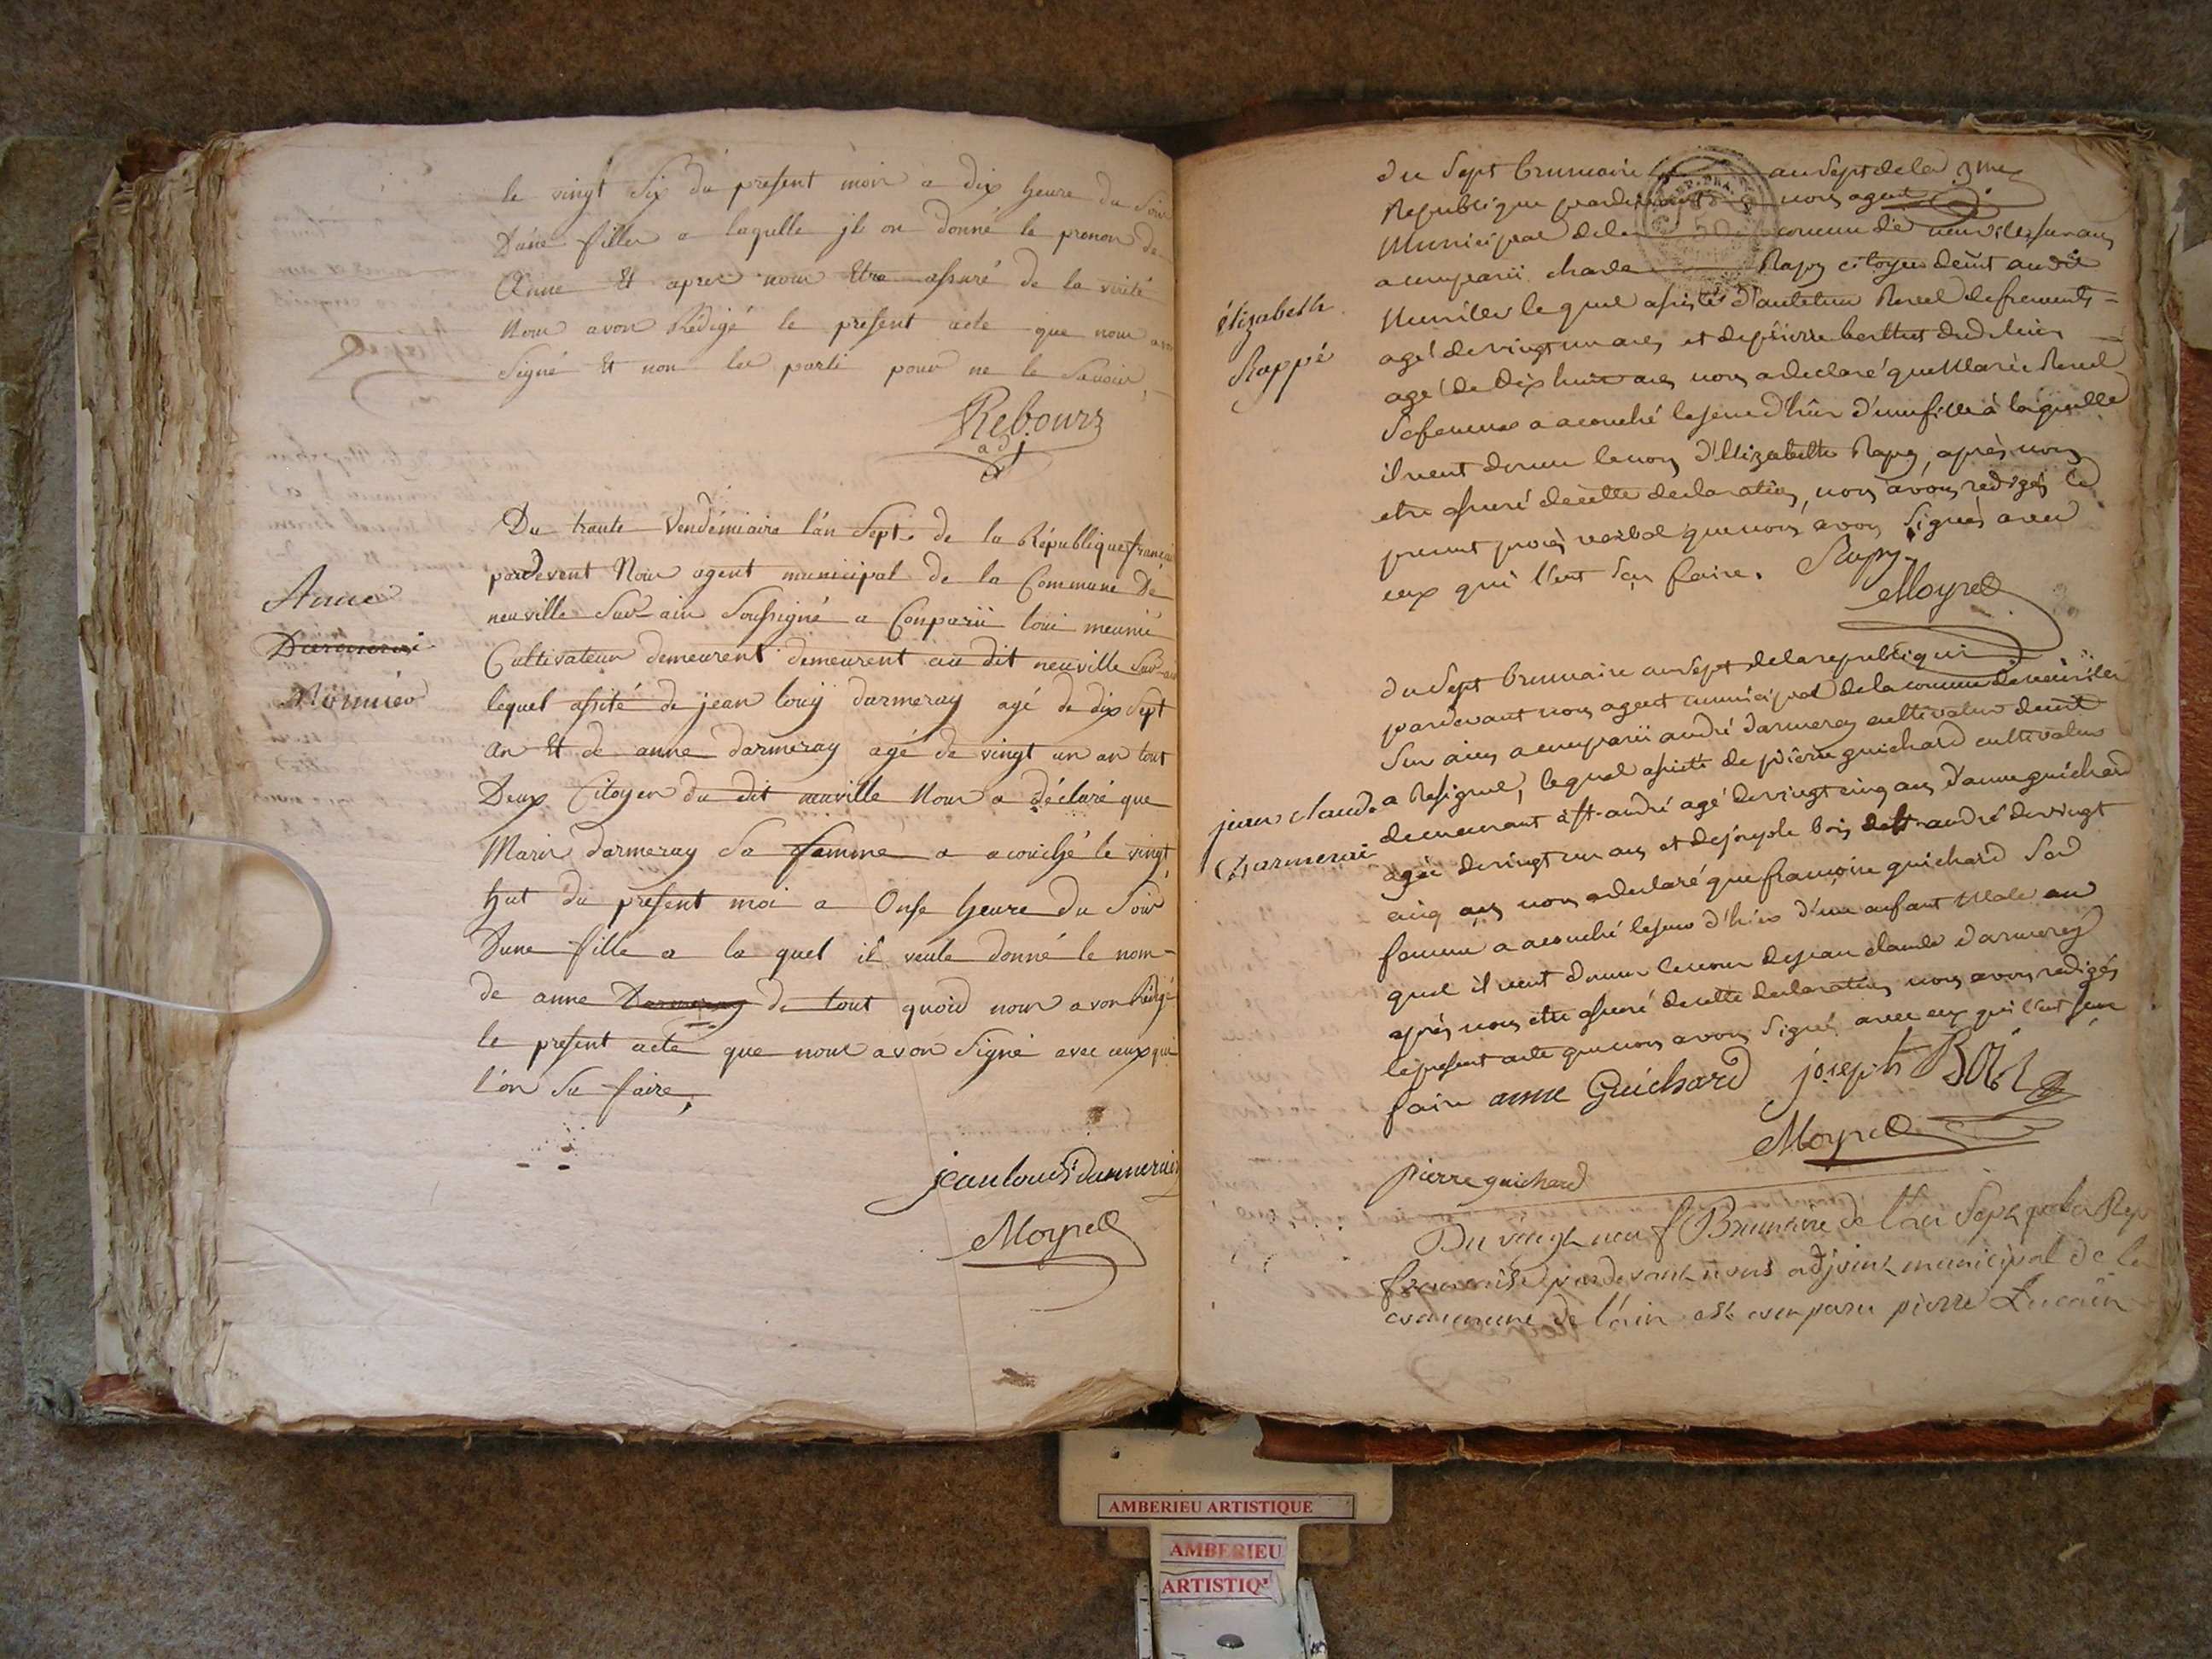 le vingt Six du present moir a dix heure du Soir
Dune fille a laquelle jls on donné le prenon de
Anne Et aprer nour Etre assuré de la virité
Nour avon Rédigé le present acte que nour avon
Signé Et non ler parti pour ne le Savoir
Rebours
adj
Du trante Vendémiaire l'an Sept de la République françai
pardevent Nour agent municipal de la Commune De
neuville Sur ain Soussigné a Conparü loui meunié
Cultivateur demeurent demeurent au dit neuville Sur ain
lequel assité de jean louij darmeray agé de dix Sept
An Et de anne darmeray agé de vingt un an tout
Deux Citoyen du dit neuville Nour a déclaré que
Marir darmeray Sa famme a acouché le vingt
hut du present moi a Onse heure du Soir
Dune fille a la quel il veule donné le nom
de anne Darmeray de tout quoid nour avon Rédigé
le present acte que nour avon Signé avec ceux qui
l'on Su faire,
jean louis darmerai
Moyret
Anne
Darmerai
Meunier
du Sept brumaire an Sept de la
Republique pardevant nous agent
Municipal de la comune de neuville sur ain
a comparü charle Rapy citoyen deint audit
Neuville le quel assisté d'
agé de vingt un ans et de pierre berthet
agé de Dix huit ans nous a declaré que Marie
Sa femme a acouché le jour d'hier d'une fille à laquelle
il veut donner le nom d'Elizabethe Rapy, après nous
etre assuré de cette declaration, nous avons redigés le
present procès verbal que nous avons Signés avec
eux qui l'ont Su faire. Rapy
Moyret
Élizabeth
Rappé
du Sept brumaire an Sept de la republique
pardevant nous agent municipal de la comune de neuville
Sur ain a comparü andré darmeray cultivateur deint
a Resignel, lequel assisté de pierre guichard cultivateur
demeurant à st-andré agé de vingt cinq ans d'anne guichard
agée de vingt un ans et de joseph bois de st-andré de vingt
cinq ans nous a declaré que françoise guichard Sa
femme a acouché le jour d'hier d'un enfant Male au
quel il veut donner le nom de jean claude darmeray
après nous etre assuré de cette declaration nous avons redigés
le present acte que nous avons Signés avec eux qui l'ont su
faire anne Guichard joseph Bois
Moyret
pierre guichard
jean claude
Darmerai
Du vingt neuf Brumaire de l'an Sept de la Rep
francaise pardevant nous adjoint municipal de la
commune de l'ain est comparu pierre
AMBERIEU ARTISTIQUE
AMBERIEU
ARTISTIQ